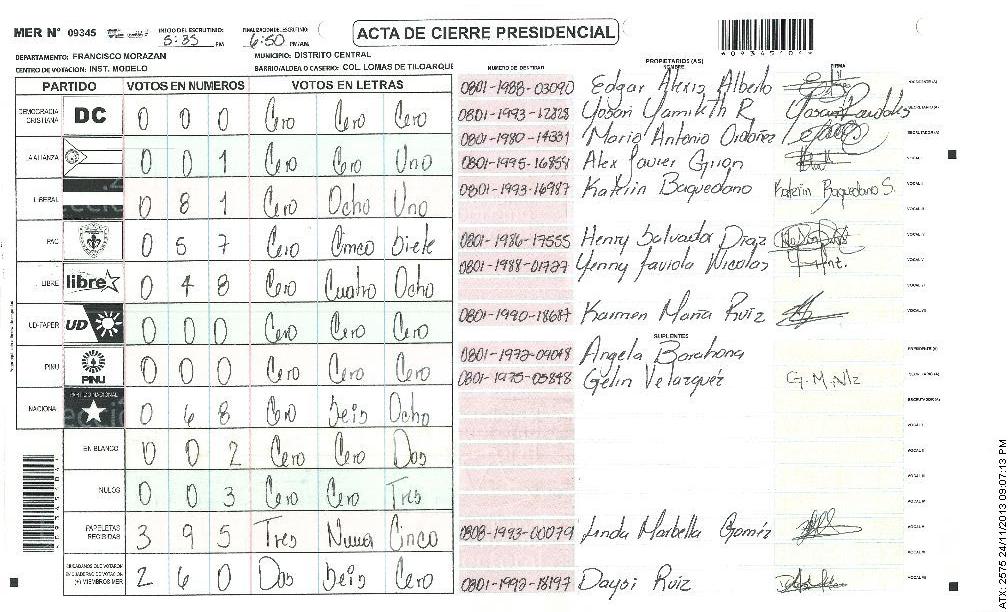 MER N° 09345 INICIO DEL ESCRUTINIO: 5:35 PM FINALIZACION DEL ESCRUTINIO: 6:50 PM/AM. ACTA DE CIERRE PRESIDENCIAL
*09345101*
DEPARTAMENTO: FRANCISCO MORAZAN MUNICIPIO: DISTRITO CENTRAL
CENTRO DE VOTACION: INST. MODELO BARRIO/ALDEA O CASERIO: COL. LOMAS DE TILOARQUE
PARTIDO VOTOS EN NUMEROS VOTOS EN LETRAS
DEMOCRACIA CRISTIANA DC 0 0 0 Cero Cero Cero
ALIANZA 0 0 1 Cero Cero Uno
LIBERAL 0 8 1 Cero Ocho Uno
PAC 0 5 7 Cero Cinco Siete
LIBRE libre 0 4 8 Cero Cuatro Ocho
UD-FAPER UD 0 0 0 Cero Cero Cero
PINU PINU 0 0 0 Cero Cero Cero
NACIONAL PARTIDO NACIONAL 0 6 8 Cero Seis Ocho
EN BLANCO 0 0 2 Cero Cero Dos
NULOS 0 0 3 Cero Cero Tres
PAPELETAS RECIBIDAS 3 9 5 Tres Nueve Cinco
CIUDADANOS QUE VOTARON EN CUADERNO DE VOTACION (+) MIEMBROS MER 2 6 0 Dos Seis Cero
NUMERO DE IDENTIDAD PROPIETARIOS (AS) NOMBRE FIRMA
0801-1988-03090 Edgar Alexis Alberto PRESIDENTE (A)
0801-1993-12828 Yosari Yamileth R. SECRETARIO (A)
0801-1980-14331 Mario Antonio Ordoñez ESCRUTADOR (A)
0801-1995-16854 Alex Javier Giron VOCAL I
0801-1993-16987 Katerin Baquedano Katerin Baquedano S. VOCAL II
0801-1986-17555 Henry Salvador Diaz
0801-1988-01727 Yenny Faviola Nicolas
0801-1990-18687 Karmen Maria Ruiz
SUPLENTES
0801-1972-04048 Angela Barahona PRESIDENTE (A)
0801-1975-05848 Gelin Velazquez G.M.Nlz SECRETARIO (A)
ESCRUTADOR (A)
0808-1993-00079 Linda Marbella Gomez
0801-1992-18197 Daysi Ruiz
ATX: 2575 24/11/2013 09:07:13 PM